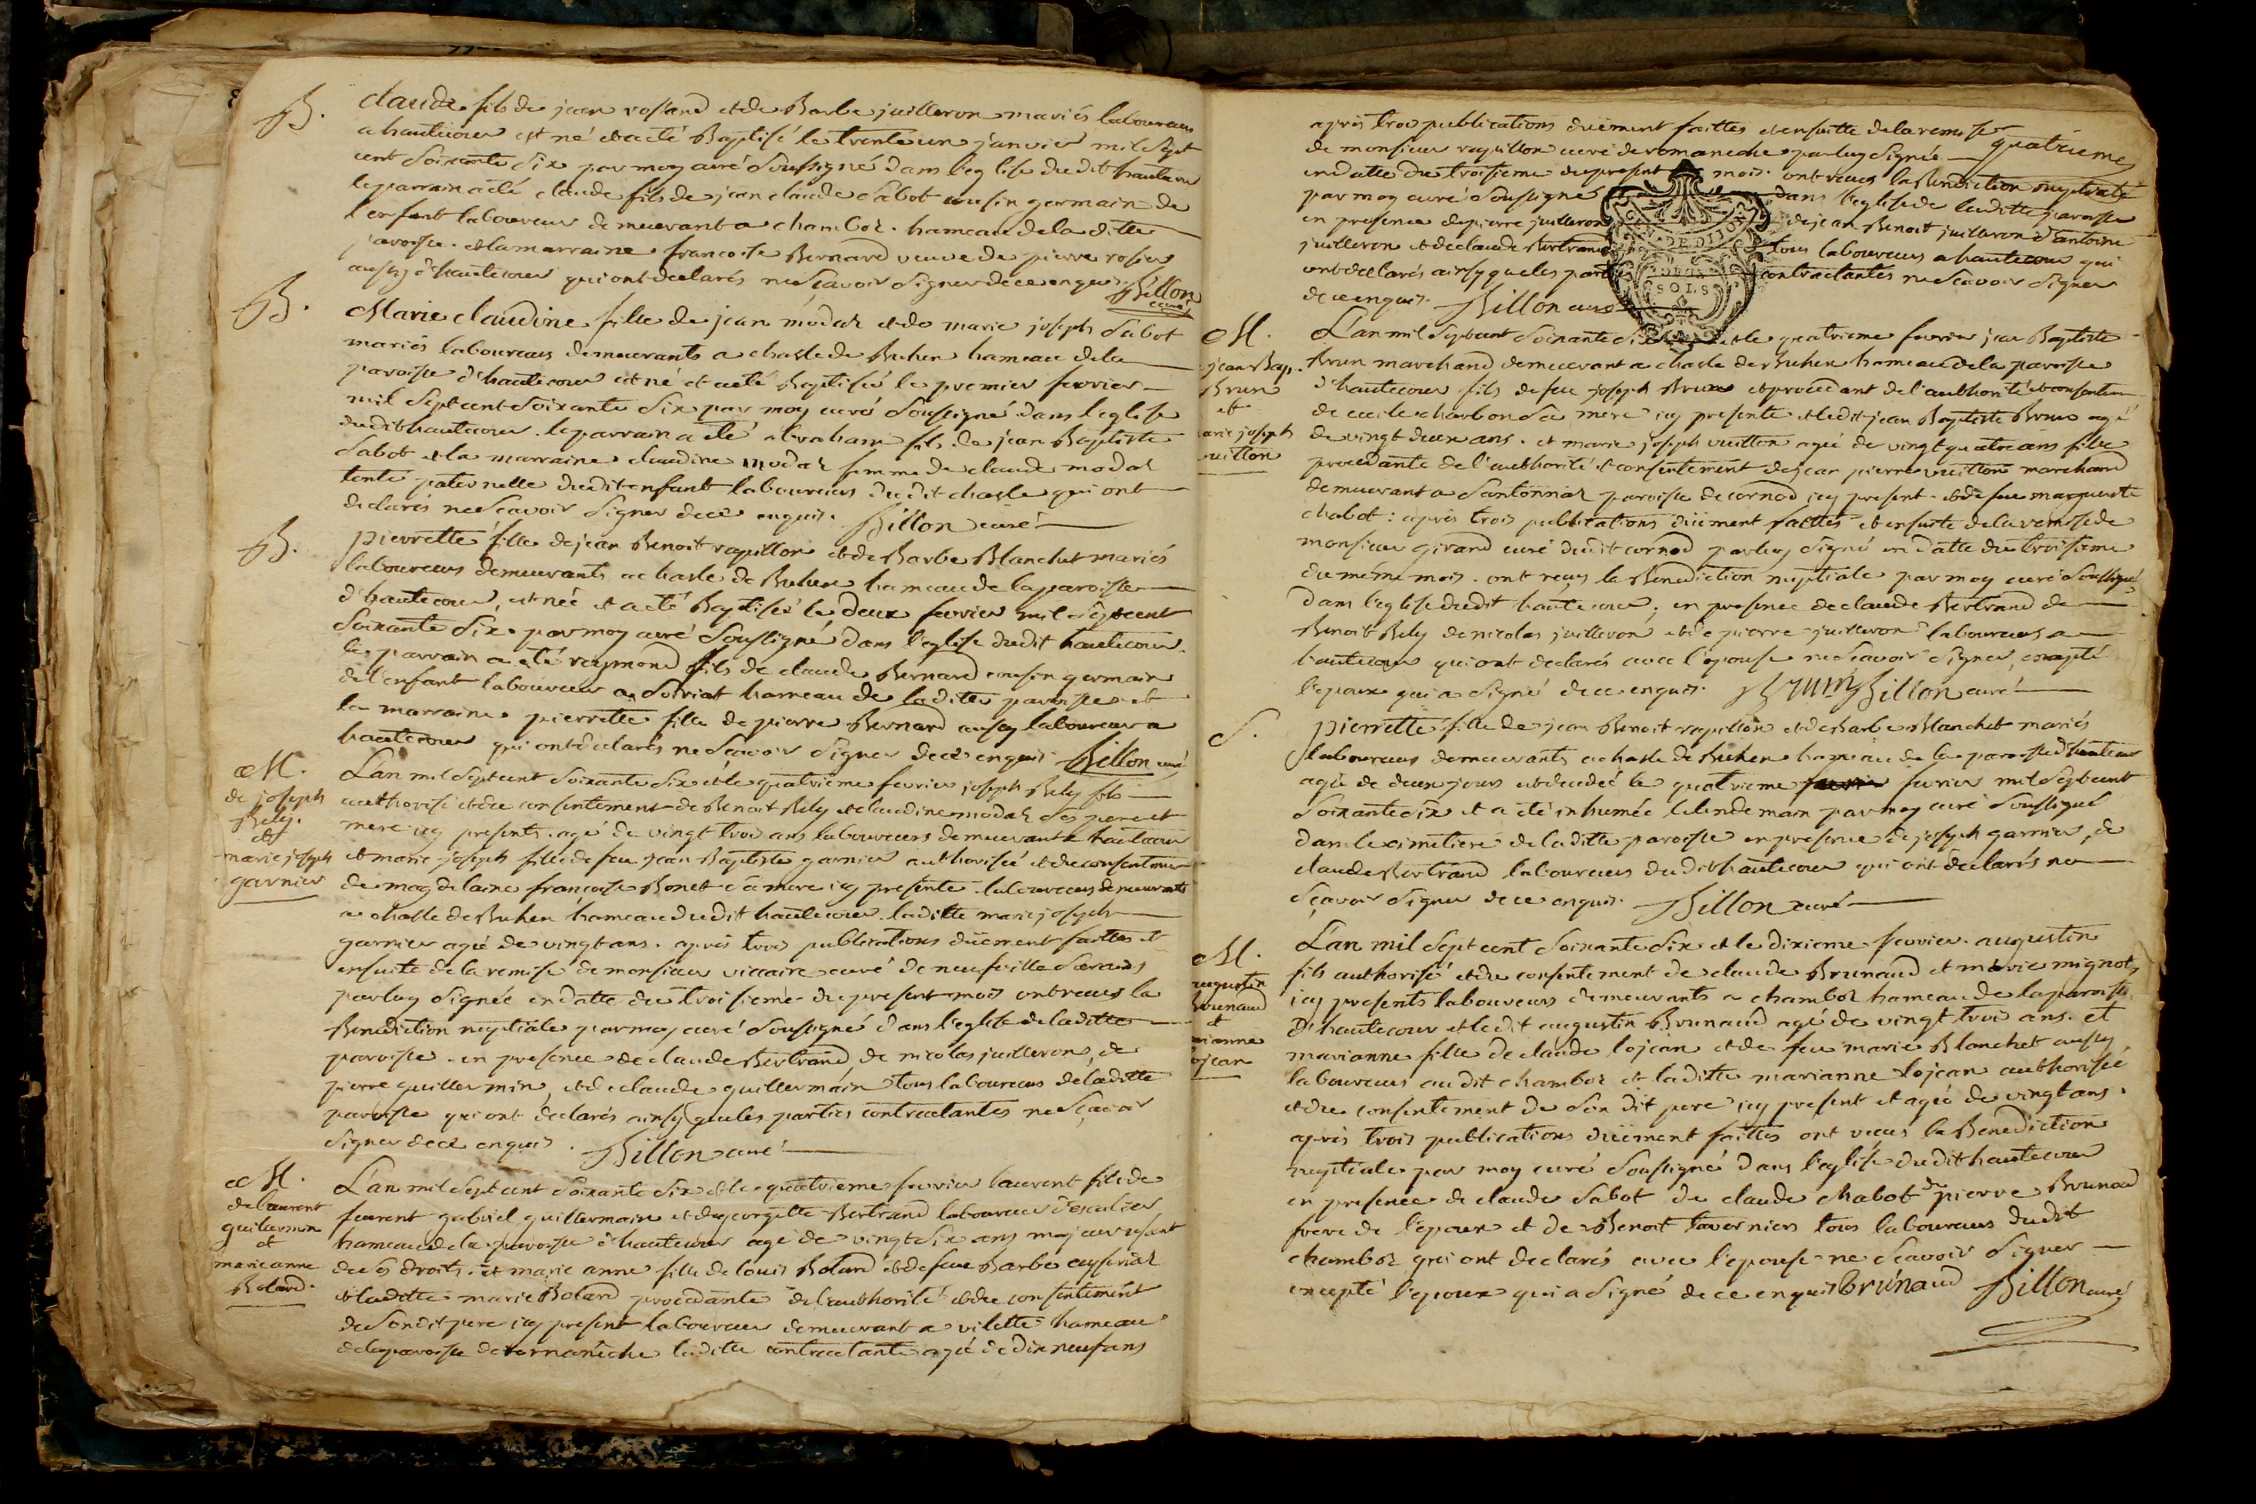 B. claude fils de jean rostand et de Barbe juilleron mariés laboureurs
a hautecour est né et a été Baptisé le trente un janvier mil sept
cent soixante six par moy curé soussigné dans l'eglise dudit hautecour
le parrain a été claude fils de jean claude sabot cousin germain de
l'enfant laboureur demeurant a chambod hameau de la ditte
paroisse et la marraine francoise Bernard veuve de pierre rosier
aussy d'hautecour qui ont declarés ne sçavoir signer de ce enquis. Billon
curé
B. Marie claudine fille de jean modas et de marie joseph sabot
mariés laboureurs demeurants a chasle de Buhen hameau de la
paroisse d'hautecour est né et a été Baptisée le premier fevrier
mil sept cent soixante six par moy curé soussigné dans l'eglise
dudit hautecour. le parrain a été abraham fils de jean Baptiste
sabot et la marraine claudine modas femme de claude modas
tente paternelle dudit enfant laboureurs dudit chasle qui ont
declarés ne sçavoir signer de ce enquis. Billon curé
B. pierrette fille de jean Benoit rapillon et de Barbe Blanchet mariés
laboureurs demeurants a chasle de Buhen hameau de la paroisse
d'hautecour, est née et a été Baptisée le deux fevrier mil sept cent
soixante six par moy curé soussigné dans l'eglise dudit hautecour.
le parrain a été raymond fils de claude Bernard cousin germain
de l'enfant laboureur a soiriat hameau de la ditte paroisse et
la marraine pierrette fille de pierre Bernard aussy laboureur a
hautecour qui ont declarés ne sçavoir signer de ce enquis Billon curé
M.
de joseph
Bely.
et
marie joseph
garnier
L'an mil sept cent soixante six et le quatrieme fevrier joseph Bely fils
authorisé et du consentement de Benoit Bely et claudine modas ses pere et
mere icy presents. agé de vingt trois ans laboureurs demeurant a hautecour
et marie joseph fille de feu jean Baptiste garnier authorisée et du consentement
de magdelaine françoise Bonet sa mere icy presente laboureurs demeurants
a chasle de Buhen hameau dudit hautecour. laditte marie joseph
garnier agée de vingt ans. apres trois publications düement faittes et
ensuite de la remise de monsieur viccaire curé de neufville
par luy signée en datte du troisieme du present mois ont recus la
Benediction nuptiale par moy curé soussigné dans l'eglise de laditte
paroisse. en presence de claude Bertrand, de nicolas juilleron, de
pierre guillermin, et de claude guillermain tous laboureurs de laditte
paroisse qui ont declarés ainsy que les parties contractantes ne sçavoir
signer de ce enquis. Billon curé
M.
de laurent
guilermin
et
marie anne
Bolard.
L'an mil sept cent soixante six et le quatrieme fevrier laurent fils de
feurent gabriel guillermain et de georgette Bertrand laboureur
hameau de la paroisse d'hautecour agé de vingt six ans majeur usant
de ses droits. et marie anne fille de louis Bolard et de feue Barbe
et laditte marie Bolard procedante de l'authorité et du consentement
de son dit pere icy present laboureur demeurant a vilette hameau
de la paroisse de romanêche laditte contractante agée de dix neuf ans
apres trois publications düement faittes et ensuitte de la remise
de monsieur rapillon curé de romaneche par luy signée quatrieme
en datte du troisieme du present mois. ont recus la Benediction nuptiale
par moy curé soussigné dans l'eglise de laditte paroisse
GEN. DE DIJON
en presence de pierre juilleron de jean Benoit juilleron d'antoine
juilleron et de claude Bertrand tous laboureurs a hautecour qui
ont declarés ainsy que les parties contractantes ne sçavoir signer
SOLS
de ce enquis. Billon curé
M.
jean Bap.
Brun
et
marie joseph
vuitton
L'an mil sept cent soixante six et le quatrieme fevrier jean Baptiste
Brun marchand demeurant a chasle de Buhen hameau de la paroisse
d'hautecour fils de feu joseph Brun et procedant de l'authorité et consentement
de cecile charbon sa mere icy presente et ledit jean Baptiste Brun agé
de vingt deux ans. et marie joseph vuitton agée de vingt quatre ans fille
procedante de l'authorité et consentement de jean pierre vuitton marchand
demeurant a santonnas paroisse de cornod icy present. et de feue marguerite
chabot: apres trois publications düement faittes et ensuite de la remise de
monsieur girand curé dudit cornod par luy signé en datte du troisieme
du même mois. ont recus la Benediction nuptiale par moy curé soussigné
dans l'eglise dudit hautecour, en presence de claude Bertrand de
Benoit Bely de nicolas juilleron et de pierre juilleron laboureurs a
hautecour qui ont declarés avec l'epouse ne sçavoir signer, excepté
l'epoux qui a signé de ce enquis. Brun Billon curé
S. pierrette fille de jean Benoit rapillon et de Barbe Blanchet mariés
laboureurs demeurants a chasle de Buhen hameau de la paroisse d'hautecour
agée de deux jours est decedée le quatrieme fevrier mil sept cent
soixante six et a été inhumée le lendemain par moy curé soussigné
dans le cimetiere de laditte paroisse en presence de joseph garnier, de
claude Bertrand laboureurs dudit hautecour qui ont declarés ne
sçavoir signer de ce enquis. Billon curé
M.
augustin
Brunaud
et
marianne
lojean
L'an mil sept cent soixante six et le dixieme fevrier. augustin
fils authorisé et du consentement de claude Brunaud et marie mignot
icy presents laboureurs demeurants a chambod hameau de la paroisse
d'hautecour et ledit augustin Brunaud agé de vingt trois ans. et
marianne fille de claude lojean et de feu marie Blanchet aussy
laboureurs au dit chambod et laditte marianne lojean authorisée
et du consentement de son dit pere icy present et agée de vingt ans.
apres trois publications düement faittes ont recus la Benediction
nuptiale par moy curé soussigné dans l'eglise dudit hautecour
en presence de claude sabot de claude chabot de pierre Brunod
frere de l'epoux et de Benoit tavernier tous laboureurs dudit
chambod qui ont declarés avec l'epouse ne sçavoir signer
excepté l'epoux qui a signé de ce enquis Brunaud Billon curé